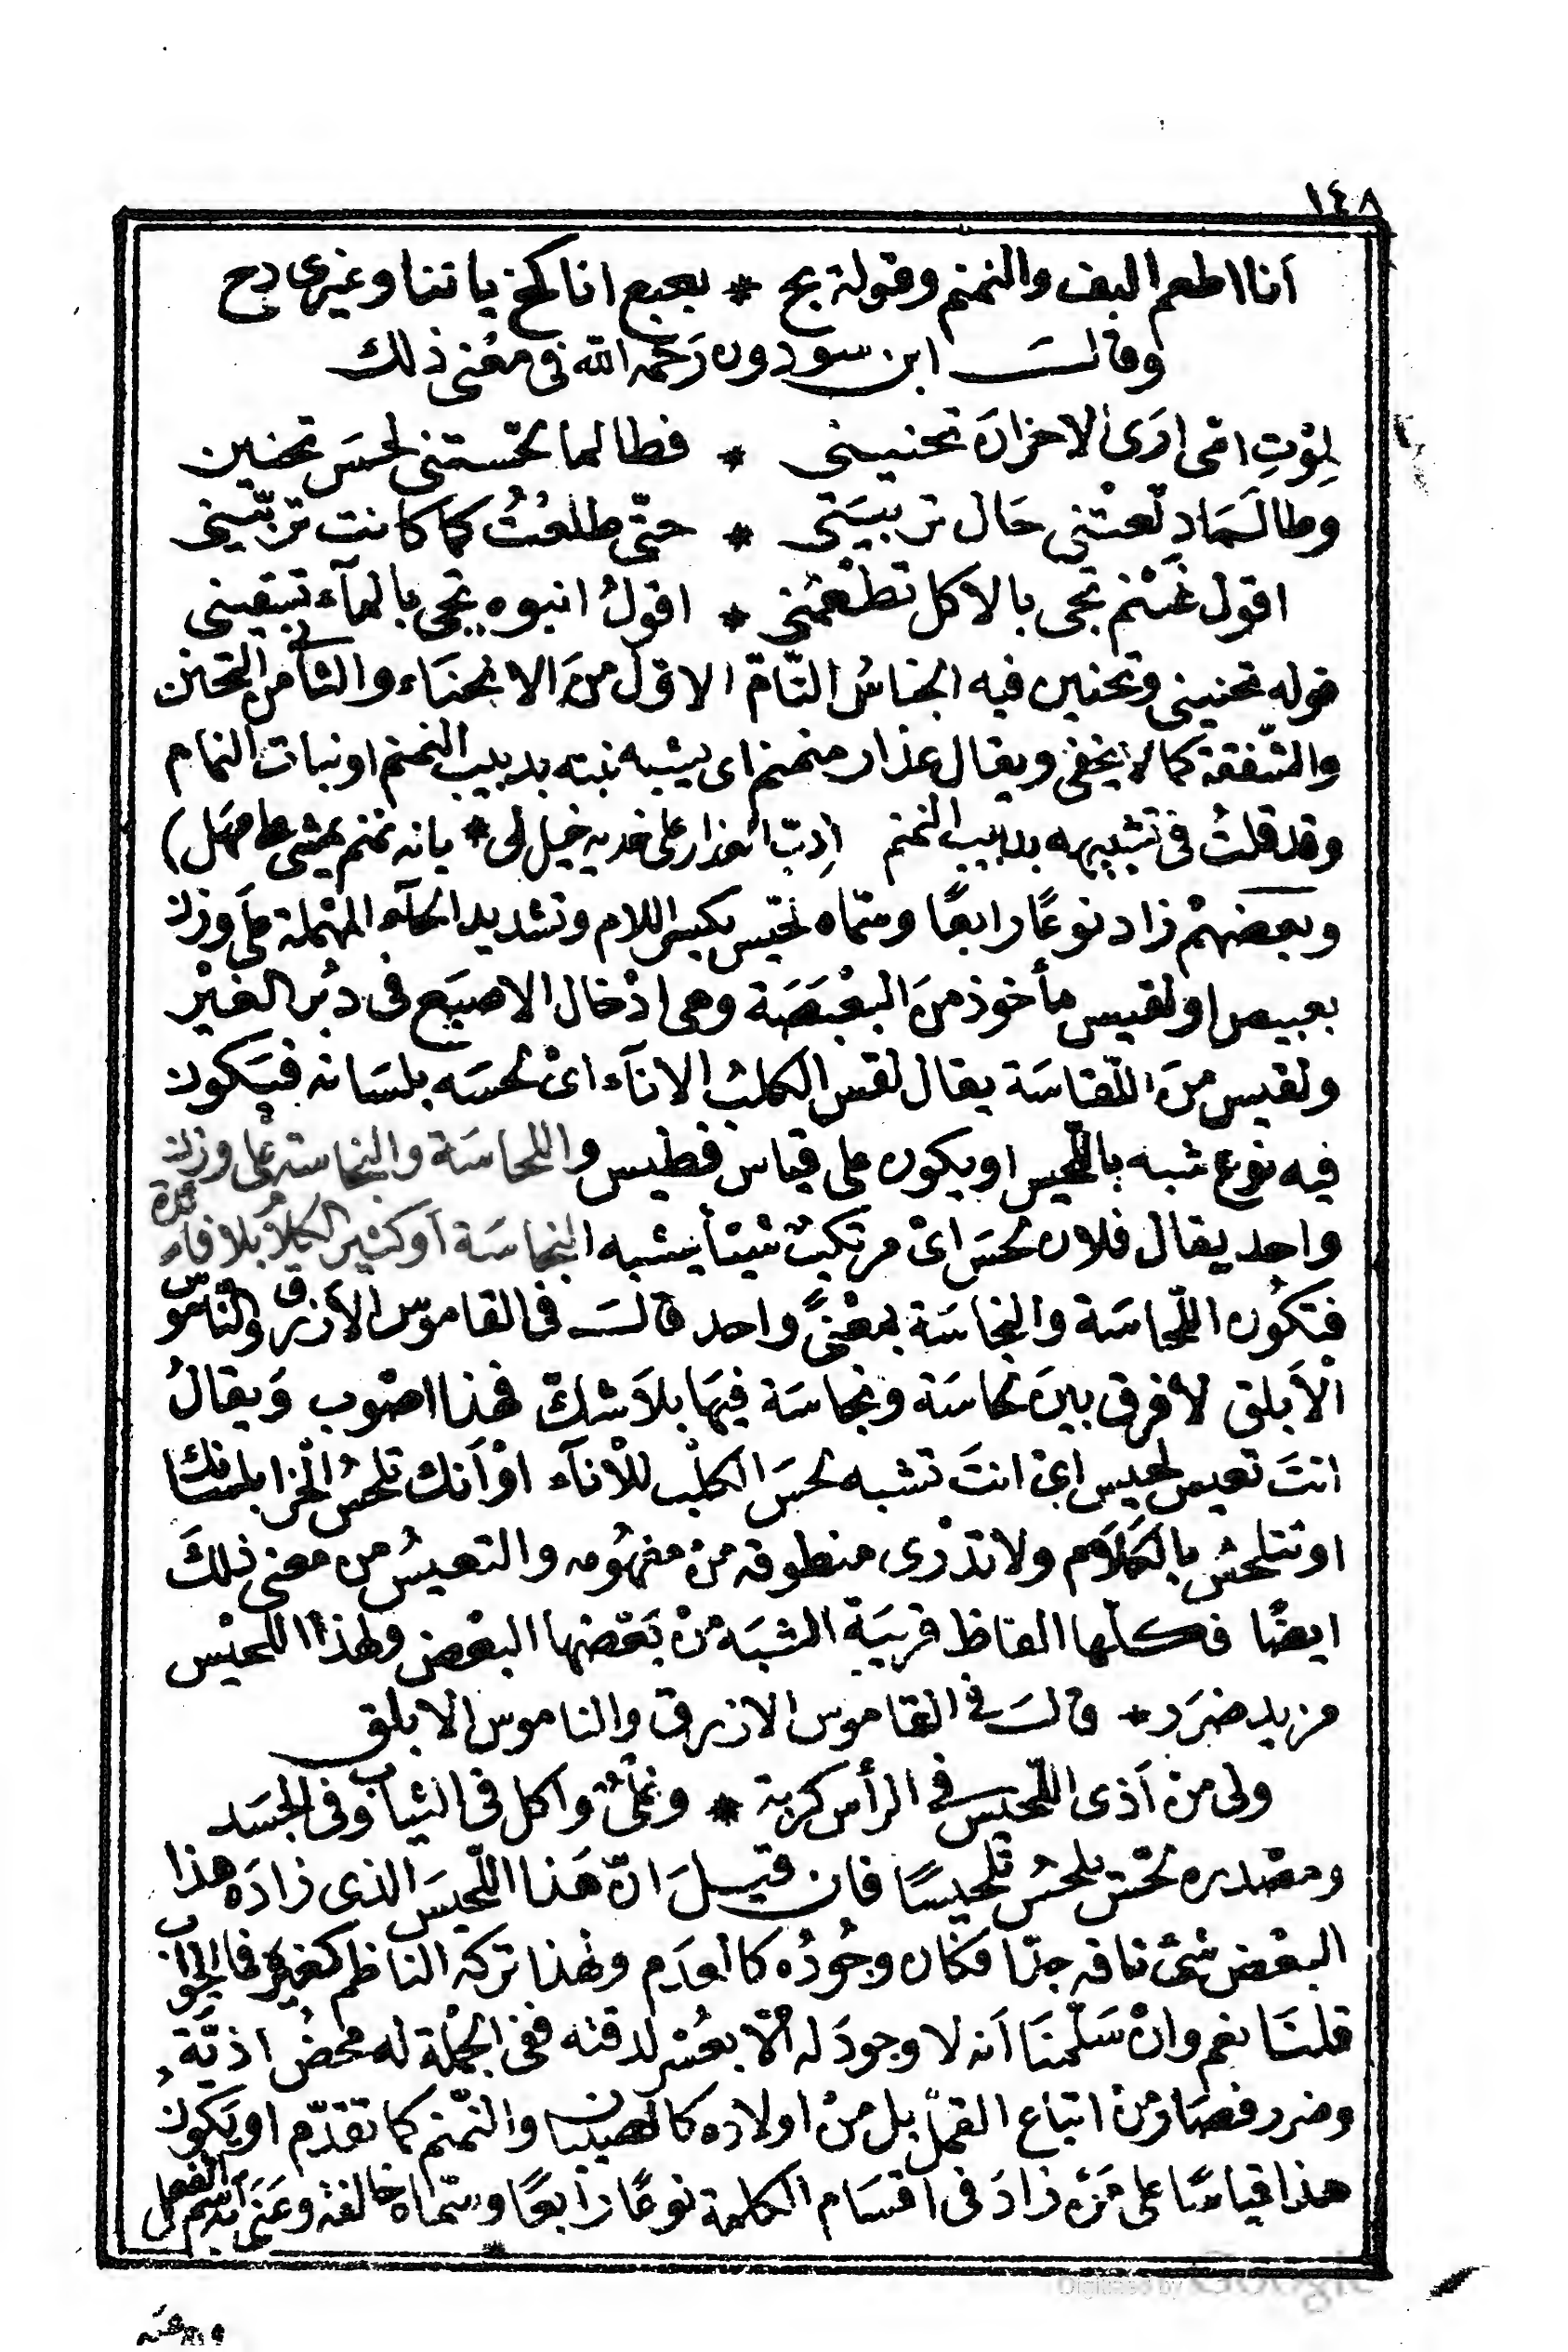 ١٤٨
انا اطعم البف والنمنم وقولة بح * بعبع انا كخ يا تتنا وغيرى دح
وقالــــ ابن سودون رحمه الله فى معنى ذلك
لِمَوْتِ امّى ارَى الاحزانَ تحنينى * فطالما لحّستنى لحسَ تحنين
وطالَمَا دلّعتْنى حَال تربيَتى * حتّى طلعْتُ كما كانت تربّينى
اقول نمْنم تجى بالاكل تطعمنى * اقولُ انبوه تجى بالمآء تسقينى
قوله تحنينى وتحنين فيه الجناسُ التّامّ الاوّل منَ الانحنَاء والثانى من التحنن
والشّفقة كما لا يخفى ويقال عذار منمنم اى يشبه نبته بدبيب النمنم او نبات النمام
وقد قلتُ فى تشبيهه بدبيب النمنم (دبّ العذار على خديه خيل لى * بانه نمنم يمشى على مهل)
وبعضهمْ زاد نوعًا رابعًا وسمّاه لحّيس بكسر اللام وتشديد الحآء المهملة على وزن
بعبيص او لقيس مأخوذ منَ البعْبَصَة وهى ادْخال الاصبَع فى دبُر الغيْر
ولقيس منَ اللّقاسَة يقال لقس الكلبُ الانآء اىْ لحسَه بلسَانه فيَكون
فيه نوع شبه باللّحيس او يكون على قياس فطيس واللحاسَة والنجاسة على وزن
واحد يقال فلان لحسَ اىْ مرتكبٌ شيئاً يشبه النجاسَة أوكثير الكلاُم بلا فائدة
فتكُون اللّحاسَة والنجاسَة بمعْنىً واحد قالــ فى القاموس الأزرق والنّاموس
الْأبلق لا فرق بينَ لحاسَة ونجاسَة فيهَا بلاَ شكّ فهذا اصْوب وَيقالُ
انتَ تعيس لحيس اىْ انتَ تشبه لحسَ الكلْب للْانآء اوْ أنك تلحسُ الْخرا بلسانك
او تتلحسُ بالكَلاَم ولا تدْرى منطوقه منْ مفهُومه والتعيسُ من معنى ذلكَ
ايضًا فكلّها الفاظ قريبَة الشبَه منْ بَعْضها البعْض ولهذا اللحيْس
مزيد ضرَر * قالــ فى القاموس الازرق والناموس الابلق
ولى منْ أذى اللّحيس فى الرأس كربة * ونملٌ واكل فى الثياب وفى الجسَد
ومصْدره لحّس يلحسُ تلحيسًا فان قيــلَ انّ هَذا اللّحيسَ الذى زادَه هذا
البعْض شىْ تافه جدّا فكان وجُودُه كالعدَم ولهذا تركه الناظم كغيره فالجواب
قلنَا نعم وانْ سَلّمنَا أنه لا وجودَ له الّا بعُسْر لدقته ففى الجمْلة له محضُ اذيَّة
وضرر فصَار منْ اتباع القمْل بل منْ اولاده كالصيبان والنّمنم كما تقدّم او يَكون
هذا قياسًا على مَنْ زادَ فى اقسَام الكلمة نوعًا رابعًا وسمّاهُ خالفة وعَنَى به اسْم الفعل